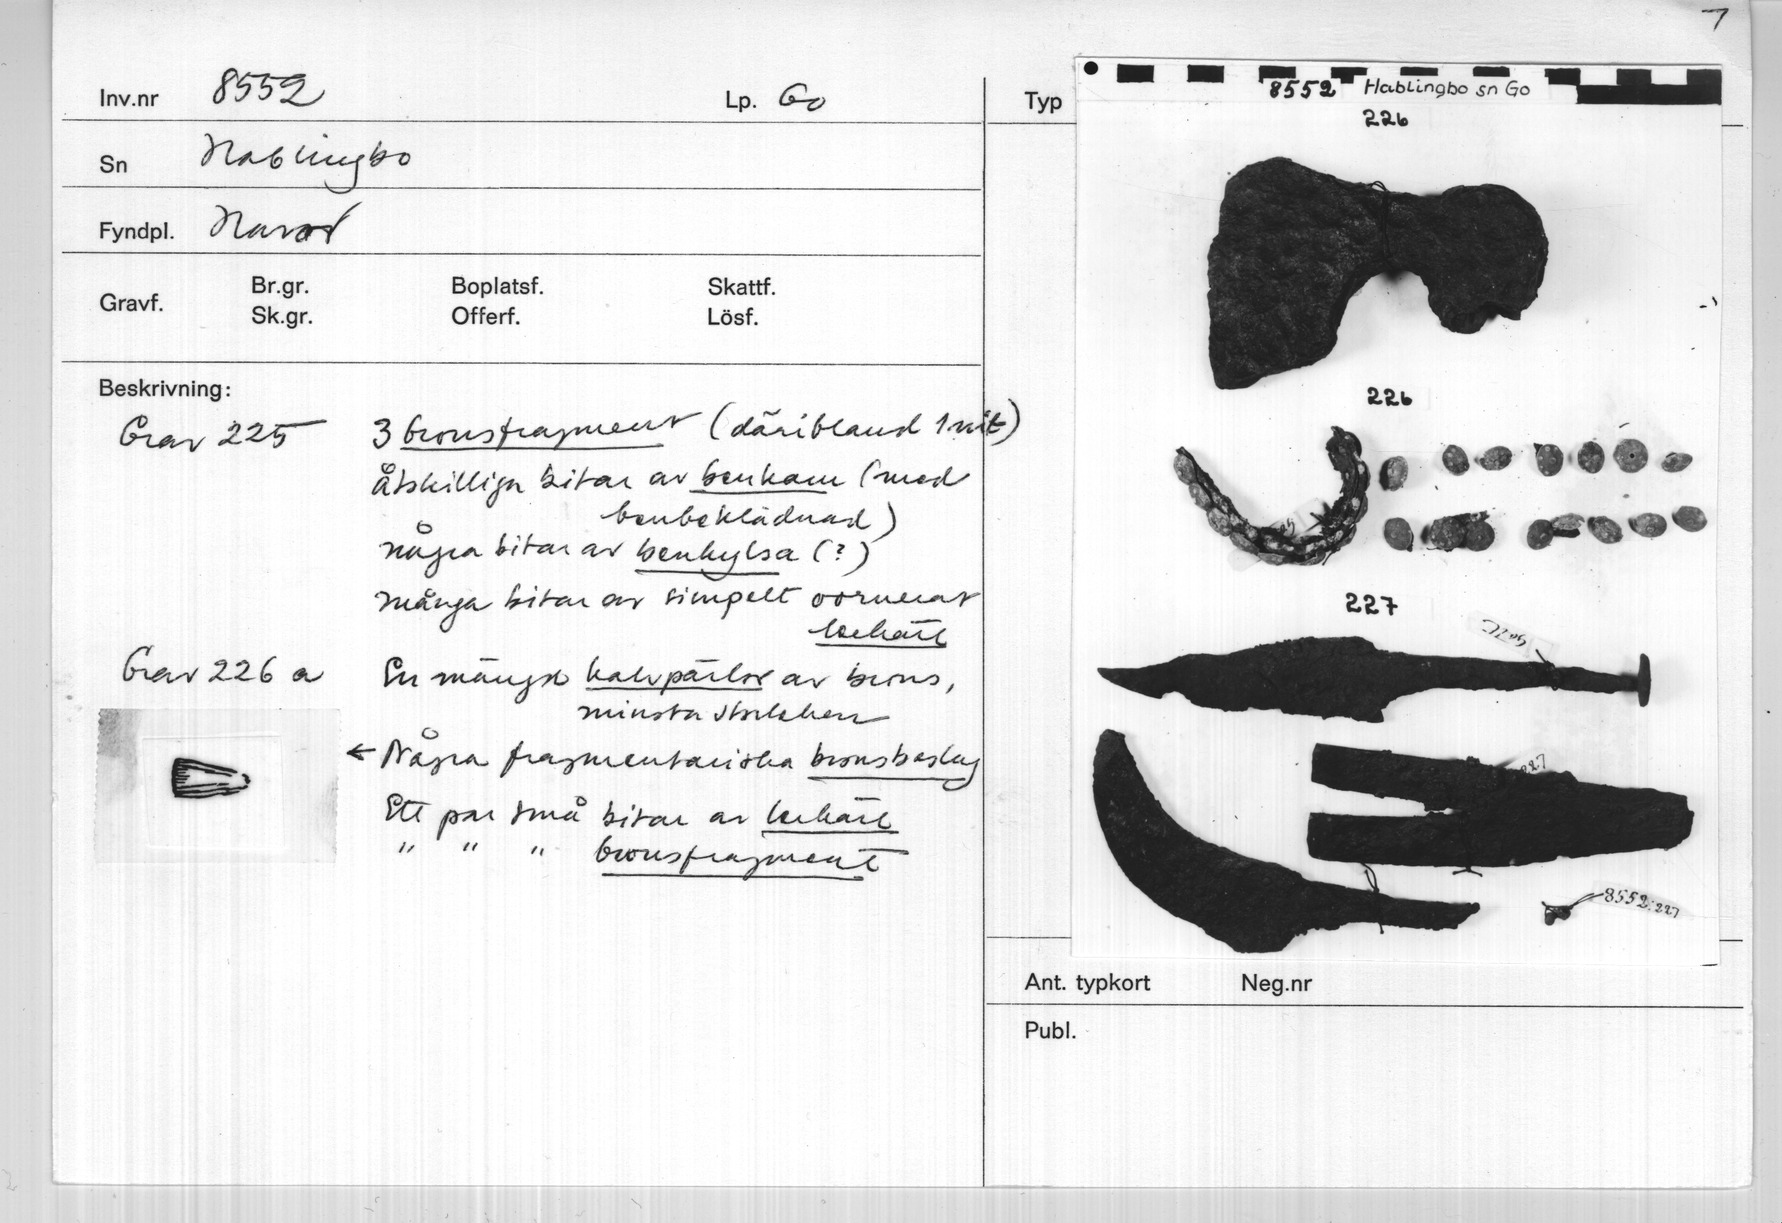 7
Inv.nr 8552 Lp. Go
Sn Hablingbo
Fyndpl. Havor
Gravf. Br.gr. Boplatsf. Skattf.
Sk.gr. Offerf. Lösf.
Beskrivning:
Grav 225 3 bronsfragment (däribland 1 nit)
åtskilliga bitar av benkam (med
benbeklädnad)
några bitar av benhylsa (?)
många bitar av simpelt oornerat
lerkärl
Grav 226 a En mängd halvpärlor av brons,
minsta storleken
← Några fragmentariska bronsbeslag
Ett par små bitar av lerkärl
" " " bronsfragment
Typ
8552 Hablingbo sn Go
226
226
227
227
8552:227
Ant. typkort Neg.nr
Publ.